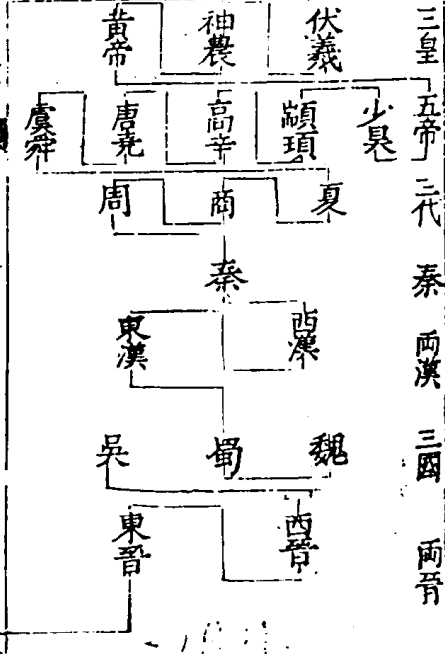 三皇 伏羲 神農 黃帝
五帝 少昊 顓頊 高辛 唐堯 虞舜
三代 夏 商 周
秦 秦
両漢 西漢 東漢
三國 魏 蜀 吳
両晉 西晉 東晉